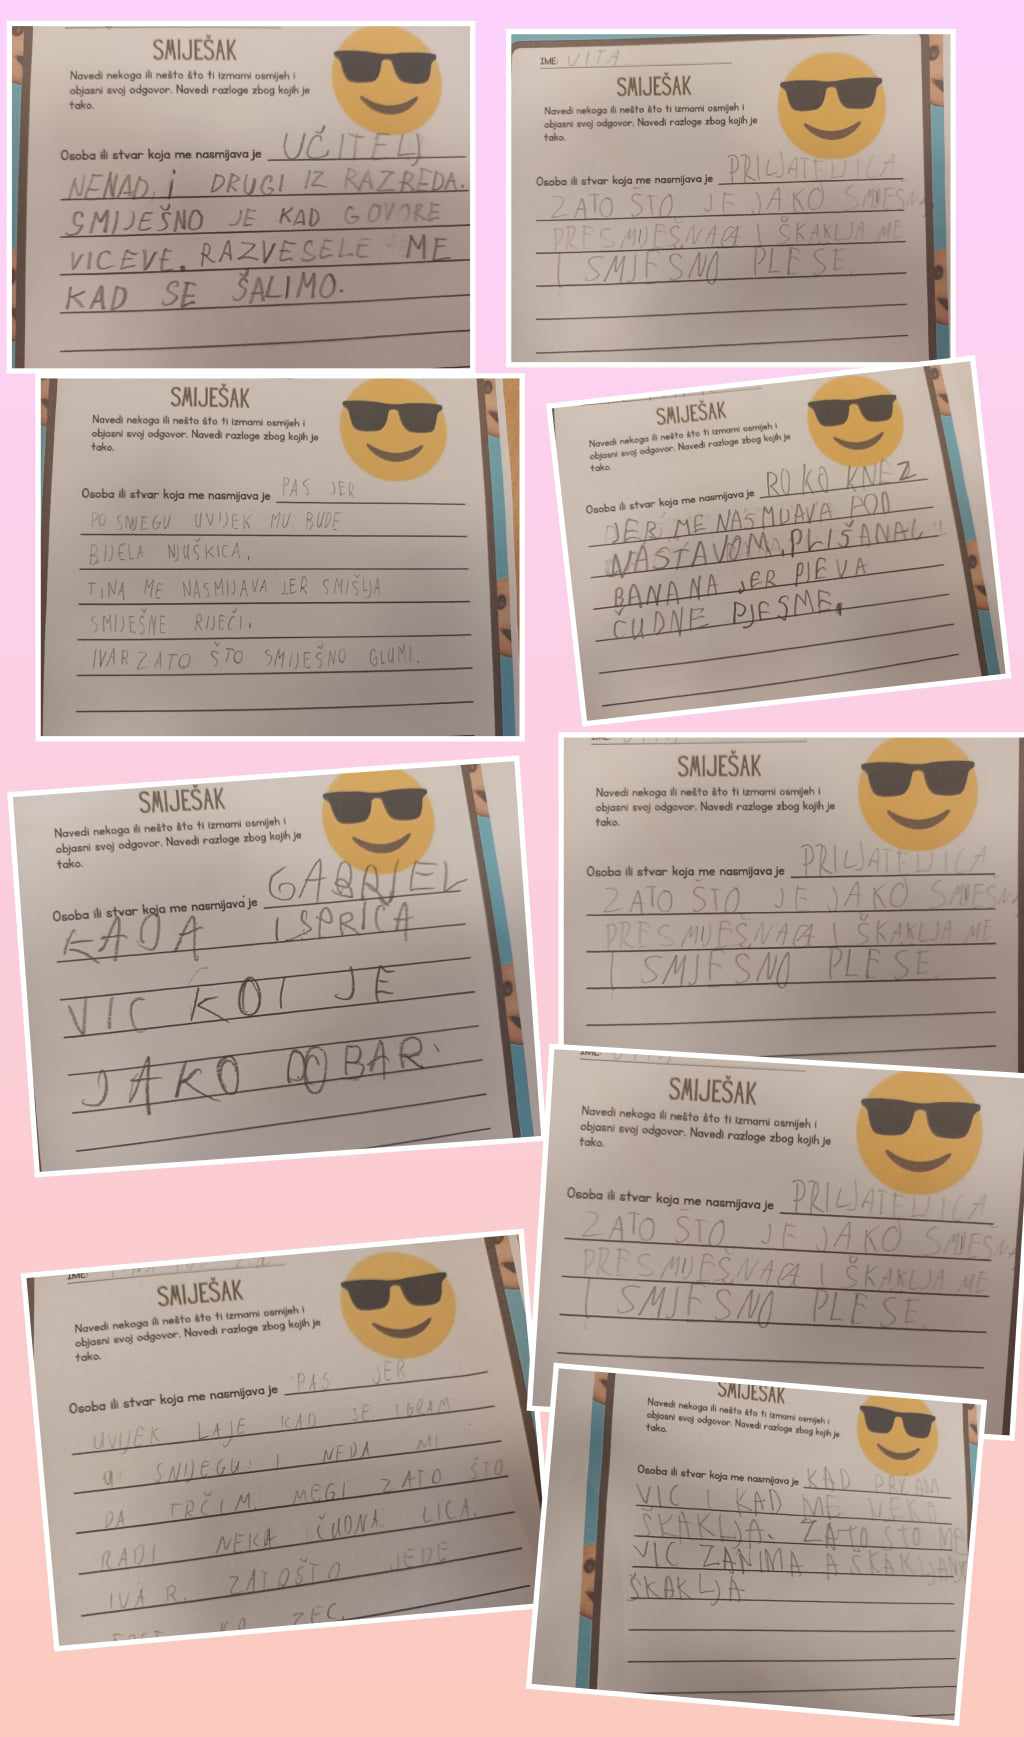 SMIJEŠAK
Navedi nekoga ili nešto što ti izmami osmijeh i
objasni svoj odgovor. Navedi razloge zbog kojih je
tako.
Osoba ili stvar koja me nasmijava je UČITELJ
NENAD, i DRUGI IZ RAZREDA.
SMIJEŠNO JE KAD GOVORE
VICEVE. RAZVESELE ME
KAD SE ŠALIMO.
IME: VITA
SMIJEŠAK
Navedi nekoga ili nešto što ti izmami osmijeh i
objasni svoj odgovor. Navedi razloge zbog kojih je
tako.
Osoba ili stvar koja me nasmijava je PRIJATELJICA
ZATO ŠTO JE JAKO
PRESMIJEŠNA I ŠKAKLJA ME
I SMJESNO PLESE
SMIJEŠAK
Navedi nekoga ili nešto što ti izmami osmijeh i
objasni svoj odgovor. Navedi razloge zbog kojih je
tako.
Osoba ili stvar koja me nasmijava je PAS JER
PO SNIJEGU UVIJEK MU BUDE
BIJELA NJUŠKICA.
TINA ME NASMIJAVA JER SMIŠLJA
SMIJEŠNE RIJEČI.
IVAR ZATO ŠTO SMIJEŠNO GLUMI.
SMIJEŠAK
Navedi nekoga ili nešto što ti izmami osmijeh i
objasni svoj odgovor. Navedi razloge zbog kojih je
tako.
Osoba ili stvar koja me nasmijava je ROKO KNEZ
JER ME NASMIJAVA POD
NASTAVOM. PLIŠANA
BANANA JER PJEVA
ČUDNE PJESME.
SMIJEŠAK
Navedi nekoga ili nešto što ti izmami osmijeh i
objasni svoj odgovor. Navedi razloge zbog kojih je
tako.
Osoba ili stvar koja me nasmijava je GABRIEL
KADA ISPRIČA
VIC KOI JE
JAKO DOBAR.
SMIJEŠAK
Navedi nekoga ili nešto što ti izmami osmijeh i
objasni svoj odgovor. Navedi razloge zbog kojih je
tako.
Osoba ili stvar koja me nasmijava je PRIJATELJICA
ZATO ŠTO JE JAKO
PRESMIJEŠNA I ŠKAKLJA ME
I SMJESNO PLESE
SMIJEŠAK
Navedi nekoga ili nešto što ti izmami osmijeh i
objasni svoj odgovor. Navedi razloge zbog kojih je
tako.
Osoba ili stvar koja me nasmijava je PRIJATELJICA
ZATO ŠTO JE JAKO
PRESMIJEŠNA I ŠKAKLJA ME
I SMJESNO PLESE
IME:
SMIJEŠAK
Navedi nekoga ili nešto što ti izmami osmijeh i
objasni svoj odgovor. Navedi razloge zbog kojih je
tako.
Osoba ili stvar koja me nasmijava je PAS JER
UVIJEK LAJE KAD SE IGRAM
U SNIJEGU I NEDA MI
DA TRČIM. MEGI ZATO ŠTO
RADI NEKA ČUDNA LICA.
IVA R. ZATOŠTO JEDE
KO ZEC.
SMIJEŠAK
Navedi nekoga ili nešto što ti izmami osmijeh i
objasni svoj odgovor. Navedi razloge zbog kojih je
tako.
Osoba ili stvar koja me nasmijava je KAD PRČAM
VIC I KAD ME NEKO
ŠKAKLJA. ZATO ŠTO ME
VIC ZANIMA A
ŠKAKLJA